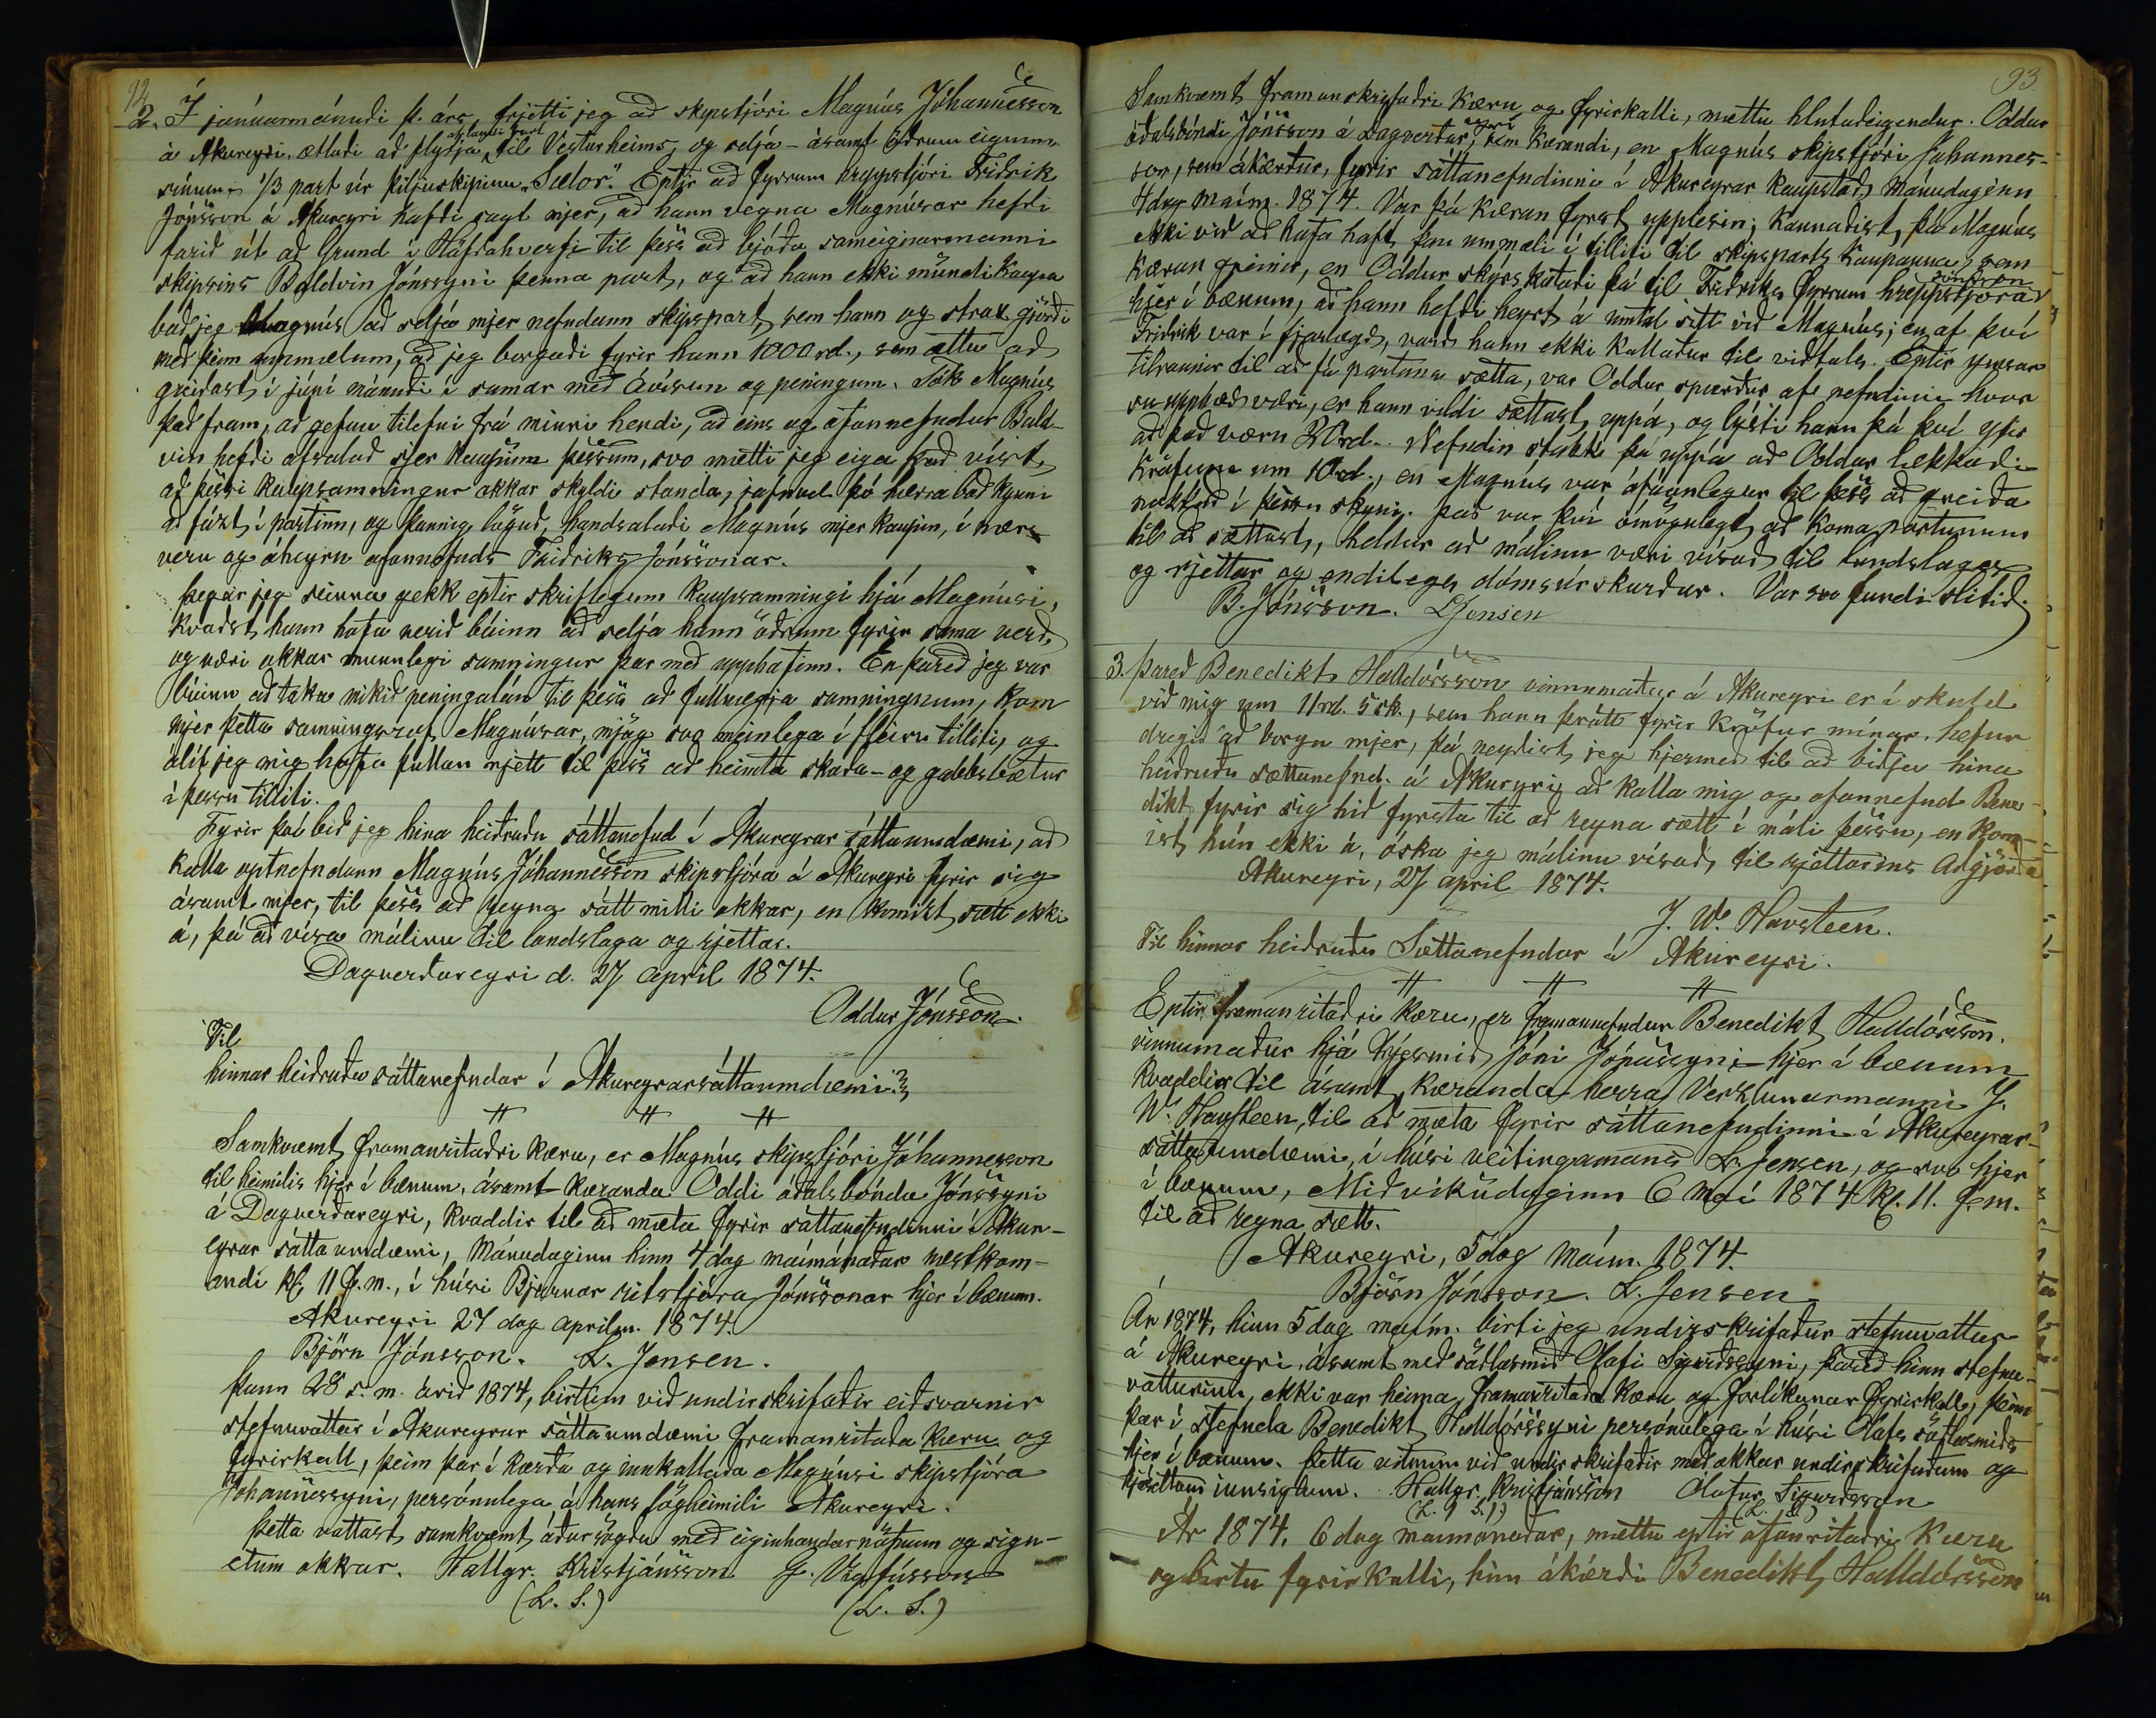 92
2. Í janúarmánuði þ. árs, frjetti jeg að skipstjóri Magnús Jóhannesson
á Akureyri, ætlaði að flytja af landi burt til Vesturheims, og selja - ásamt öðrum eigum
sínum - 1/3 part úr þiljuskipinu "Sælor". Eptir að fyrrum hreppstjóri Friðrik
Jónsson á Akureyri hafði sagt mjer, að hann vegna Magnúsar hefði
farið út að Grund í Höfðahverfi til þess að bjóða sameignarmanni
skipsins Baldvin Jónssyni þenna part, og að hann ekki mundi kaupa
bað jeg Magnús að selja mjer nefndann skipspart, sem hann og strax gjörði
með þeim ummælum, að jeg borgaði fyrir hann 1000 rd., sem ættu að
greiðast í júní mánuði í sumar með ávísun og peningum. Tók Magnús
það fram, að gefnu tilefni frá minni hendi, að eins og ofannefndur Bald-
vin hefði afsalað sjer kaupum þessum, svo mætti jeg eiga það víst,
að þessi kaupsamningur okkar skyldi standa, jafnvel þó hærra boð kynni
að fázt í partinn, og þannig löguð, handsalaði Magnús mjer kaupin, í nær-
veru og áheyrn ofannefnds Friðriks Jónssonar.
Þegar jeg sinna gekk eptir skriflegum kaupsamningi hjá Magnúsi,
kvaðst hann hafa verið búinn að selja hann öðrum fyrir sama verð,
og væri okkar munnlegi samningur þar með upphafinn. En þareð jeg var
búinn að taka mikið peningalán til þess að fullnægja samningnum, kom
mjer þetta samningsrof Magnúsar, mjög svo meinlega í fleiru tilliti, og
álít jeg mig hafa fullan rjett til þess að heimta skaða- og gabbsbætur
í þessu tilliti.
Fyrir því bið jeg hina heiðruðu sáttanefnd í Akureyrar sáttaumdæmi, að
kalla optnefndann Magnús Jóhannesson skipstjóra á Akureyri fyrir sig
ásamt mjer, til þess að reyna sátt milli okkar, en komizt sætt ekki
á, þá að vísa málinu til landslaga og rjettar.
Dagverðareyri d. 27 april 1874.
Oddur Jónsson.
Til
hinnar heiðruðu sáttanefndar í Akureyrarsáttaumdæmi.
Samkvæmt framanritaðri kæru, er Magnús skipstjóri Jóhannesson
til heimilis hjer í bænum, ásamt kæranda Oddi óðalsbónda Jónssyni
á Dagverðareyri, kvaddir til að mæta fyrir sáttanefndinni í Akur-
eyrar sáttaumdæmi, Mánudaginn hinn 4 dag maímánaðar næstkom-
andi kl. 11 f.m., í húsi Bjarnar ritstjóra Jónssonar hjer í bænum.
Akureyri 27 dag aprilm. 1874.
Björn Jónsson. L. Jensen.
Þann 28 s.m. árið 1874, birtum við undirskrifaðir eiðsvarnir
stefnuvottar í Akureyrar sáttaumdæmi framanritaða kæru og
fyrirkall, þeim þar í kærða og innkallaða Magnúsi skipstjóra
Jóhannessyni, persónulega á hans lögheimili Akureyri.
Þetta vottast samkvæmt áðursögðu með eiginhandarnöfnum og sign-
etum okkar. Hallgr. Kristjánsson G. Vigfússon
(L. S.) (L. S.)
93.
Samkvæmt framanskrifaðri kæru og fyrirkalli, mættu hlutaðeigendur. Oddur
óðalsbóndi Jónsson á Dagverðareyri, sem kærandi, en Magnús skipstjóri Jóhannes-
son, sem ákærður, fyrir sáttanefndinni í Akureyrar kaupstað, Mánudaginn
4 dag maím. 1874. Var þá kæran fyrst upplesin; kannaðist, þá Magnús
ekki við að hafa haft þau ummæli í tilliti til skipsparts kaupanna, sem
kæran greinir, en Oddur skýrskotaði þá til Friðriks fyrrum hreppstjóra Jónssonar
hjer í bænum, að hann hefði heyrt á umtal sitt við Magnús; en af því
Friðrik var í fjarlægð, varð hann ekki kallaður til viðtals. Eptir ýmsar
tilraunir til að fá partana sætta, var Oddur spurður af nefndinni hvor
su upphæð væri, er hann vildi sættast uppá, og lýsti hann þá því yfir
að það væru 20 rd. Nefndin stakk þá uppá að Oddur lækkaði
kröfuna um 10 rd., en Magnús var ófáanlegur til þess að greiða
nokkuð í þessu skyni. Það var því ómögulegt að koma pörtunum
til að sættast, heldur að málinu væri vísað til landslaga
og rjettar og endilegs dómsúrskurðar. Var svo fundi slitið.
B. Jónsson. L Jensen
3. Þareð Benedikt Halldórsson vinnumaður á Akureyri er í skuld
við mig um 11 rd. 5 sk., sem hann þrátt fyrir kröfur mínar, hefur
dregið að borga mjer, þá neyðist jeg hjermeð til að biðja hina
heiðruðu sættanefnd á Akureyri að kalla mig og ofannefnd Bene-
dikt fyrir sig hið fyrsta til að reyna sætt í máli þessu, en kom-
ist hún ekki á, óska jeg málinu vísað til rjettarins aðgjörða
Akureyri, 27 april 1874.
J. W. Havsteen.
Til hinnar heiðruðu Sættanefndar á Akureyri.
Eptir framanritaðri kæru, er framannefndur Benedikt Halldórsson,
vinnumaður hjá trjesmið Jóni Jónassyni hjer í bænum
kvaddir til ásamt kæranda herra Verzlunarmanni J.
W. Havsteen, til að mæta fyrir sáttanefndinni í Akureyrar-
sáttaumdæmi, í húsi veitingamanns L. Jensen, og svo hjer
í bænum, Miðvikudaginn 6 maí 1874 kl. 11. f.m.
til að reyna sætt.
Akureyri, 5 dag maím. 1874.
Björn Jónsson. L. Jensen
Ár 1874, hinn 5 dag maím. birti jeg undirskrifaður stefnuvottur
á Akureyri, ásamt með söðlasmið Ólafi Sigurðssyni, þareð hinn stefnu-
votturinn, ekki var heima, framanritaða kæru og forlíkunar fyrirkall, þeim
þar í stefnda Benedikt Halldórssyni persónulega í húsi Ólafs söðlasmiðs
hjer í bænum. Þetta vitnum við undirskrifaðir með okkar undirskrifuðum og
hjásettum innsiglum. Hallgr. Kristjánsson Ólafur Sigurðsson
(L. S.) (L. S.)
Ár 1874, 6 dag maimánaðar, mættu eptir ofanritaðri kæru
og birtu fyrirkalli, hinn ákærði Benedikt Halldórsson